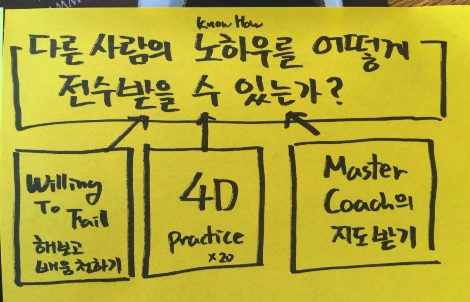 Know How
다른 사람의 노하우를 어떻게
전수받을 수 있는가?
Willing
To Fail
해보고
배움 청하기
4D
Practice
x20
Master
Coach의
지도받기